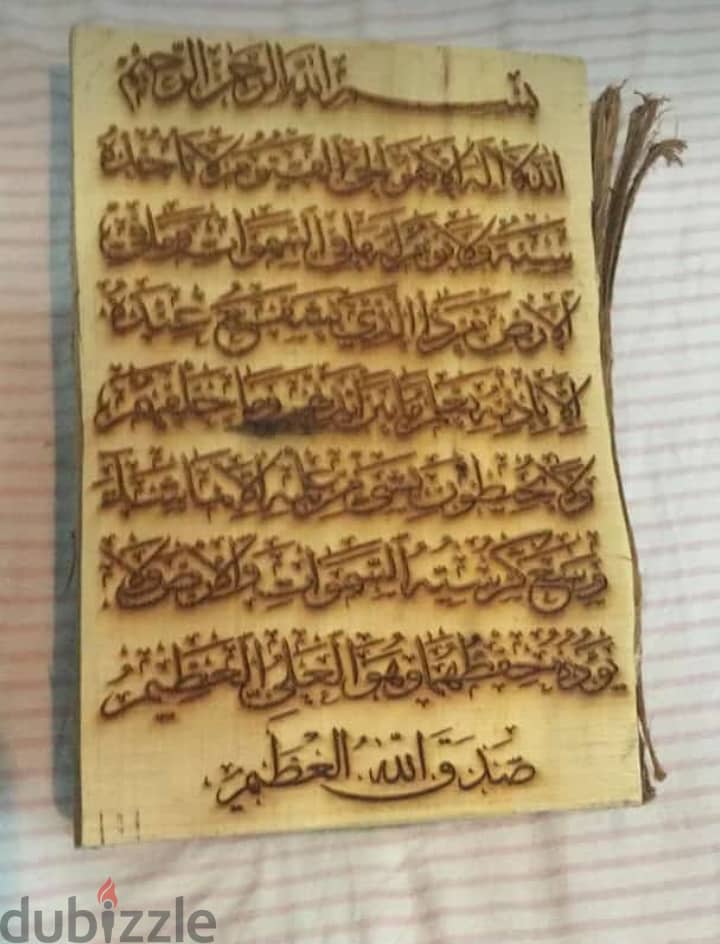 بسم الله الرحمن الرحيم
الله لا اله الا هو الحي القيوم لا تأخذه
سنة ولا نوم له ما في السموات وما في
الارض من ذا الذي يشفع عنده
الا باذنه يعلم ما بين ايديهم وما خلفهم
ولا يحيطون بشيء من علمه الا بما شاء
وسع كرسيه السموات والارض ولا
يؤده حفظهما وهو العلي العظيم
صدق الله العظيم
dubizzle